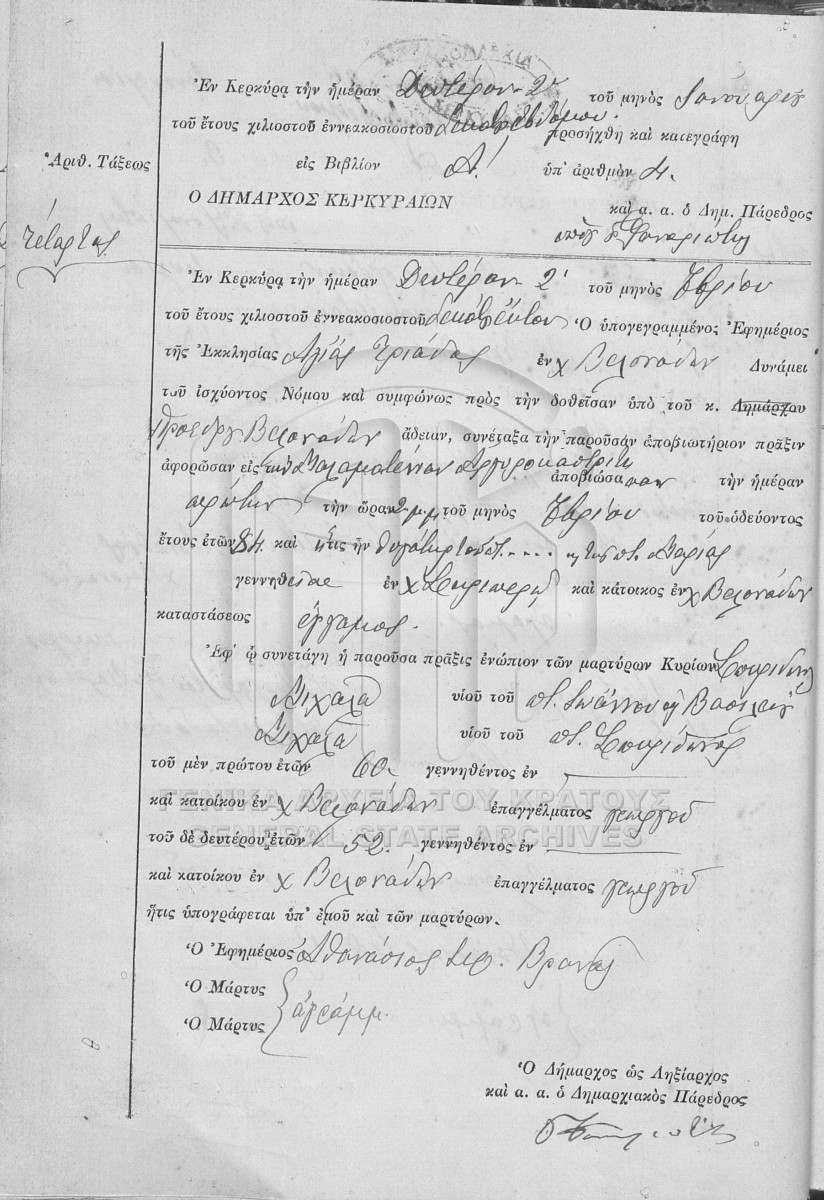 Ἐν Κερκύρᾳ τὴν ἡμέραν Δευτέραν 2αν τοῦ μηνὸς Ἰανουαρίου
τοῦ ἔτους χιλιοστοῦ ἐννεακοσιοστοῦ προσήχθη καὶ κατεγράφη
Ἀριθ. Τάξεως
εἰς Βιβλίον Α! ὑπ' ἀριθμὸν 4.
Ο ΔΗΜΑΡΧΟΣ ΚΕΡΚΥΡΑΙΩΝ
καὶ α. α. ὁ Δημ. Πάρεδρος
τέταρτος
Ἐν Κερκύρᾳ τὴν ἡμέραν Δευτέραν 2' τοῦ μηνὸς
τοῦ ἔτους χιλιοστοῦ ἐννεακοσιοστοῦ Ὁ ὑπογεγραμμένος Ἐφημέριος
τῆς Ἐκκλησίας Ἁγίας Τριάδος ἐν χ Βελονάδων Δυνάμει
τοῦ ἰσχύοντος Νόμου καὶ συμφώνως πρὸς τὴν δοθεῖσαν ὑπὸ τοῦ κ. Δημάρχου
Προέδρου Βελονάδων ἄδειαν, συνέταξα τὴν παροῦσαν ἀποβιωτήριον πρᾶξιν
ἀφορῶσαν εἰς τὴν Μαλαματένιαν Ἀργυροκαστρίτη ἀποβιώσασαν τὴν ἡμέραν
πρώτην τὴν ὥραν 2 μ.μ. τοῦ μηνὸς τοῦ ὁδεύοντος
ἔτους ἐτῶν 84 καὶ ἥτις ἦν θυγάτηρ τοῦ ποτ. .... κ τῆς ποτ. Μαρίας
γεννηθεῖσα ἐν χ Σκριπερῷ καὶ κάτοικος ἐν χ Βελονάδων
καταστάσεως ἔγγαμος.
Ἐφ' ᾧ συνετάγη ἡ παροῦσα πρᾶξις ἐνώπιον τῶν μαρτύρων Κυρίων Σπυρίδων
Μιχαλᾶ υἱοῦ τοῦ ποτ. Ἰωάννου κ Βασιλείου
Μιχαλᾶ υἱοῦ τοῦ ποτ. Σπυρίδωνος
τοῦ μὲν πρώτου ἐτῶν 60 γεννηθέντος ἐν
καὶ κατοίκου ἐν χ Βελονάδων ἐπαγγέλματος γεωργοῦ
τοῦ δὲ δευτέρου ἐτῶν 52. γεννηθέντος ἐν
καὶ κατοίκου ἐν χ Βελονάδων ἐπαγγέλματος γεωργοῦ
ἥτις ὑπογράφεται ὑπ' ἐμοῦ καὶ τῶν μαρτύρων.
Ὁ Ἐφημέριος Ἀθανάσιος Ἱερ.
Ὁ Μάρτυς
ἀγράμμ.
Ὁ Μάρτυς
Ὁ Δήμαρχος ὡς Ληξίαρχος
καὶ α. α. ὁ Δημαρχιακὸς Πάρεδρος
ΓΕΝΙΚΑ ΑΡΧΕΙΑ ΤΟΥ ΚΡΑΤΟΥΣ
GENERAL STATE ARCHIVES